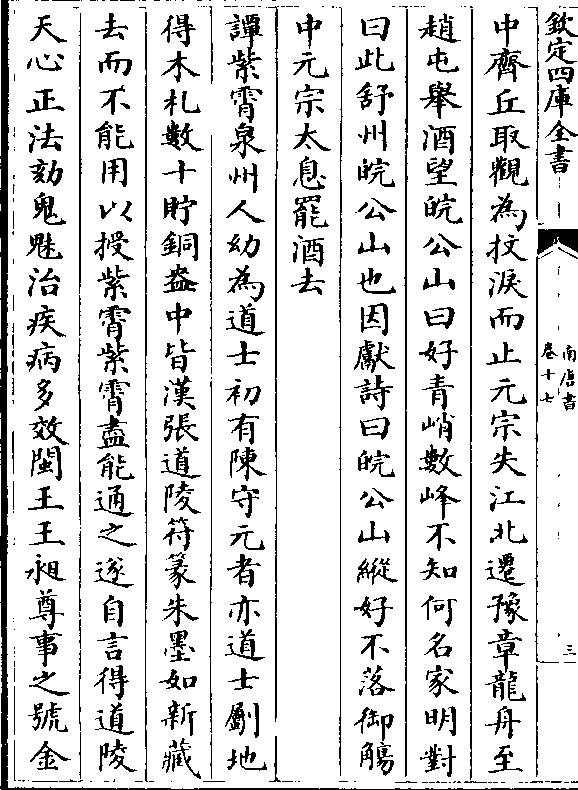 欽定四庫全書
南唐書
卷十七
三
中齊丘取觀為抆淚而止元宗失江北遷豫章龍舟至
趙屯舉酒望皖公山曰好青峭數峰不知何名家明對
曰此舒州皖公山也因獻詩曰皖公山縱好不落御觴
中元宗太息罷酒去
譚紫霄泉州人幼為道士初有陳守元者亦道士劚地
得木札數十貯銅盎中皆漢張道陵符篆朱墨如新藏
去而不能用以授紫霄紫霄盡能通之遂自言得道陵
天心正法劾鬼魅治疾病多效閩王王昶尊事之號金